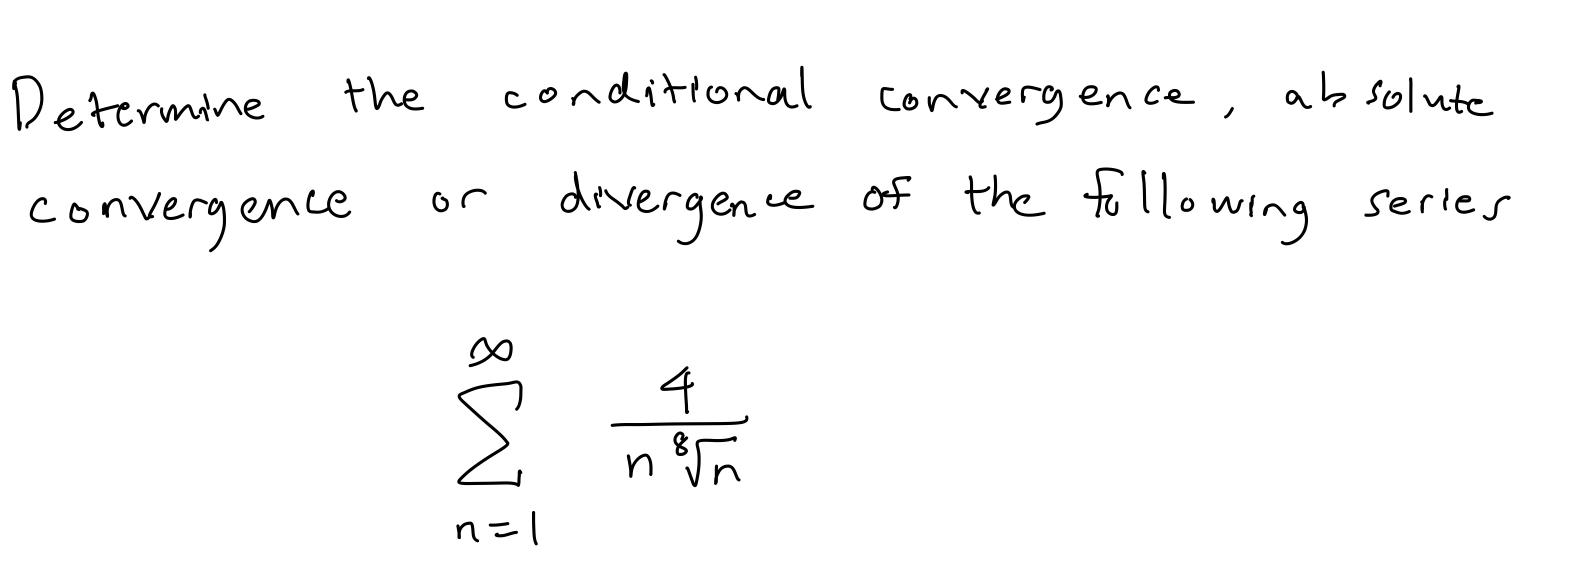 Determine the conditional convergence, absolute
convergence or divergence of the following series
∞
∑ 4/(n ⁸√n)
n=1